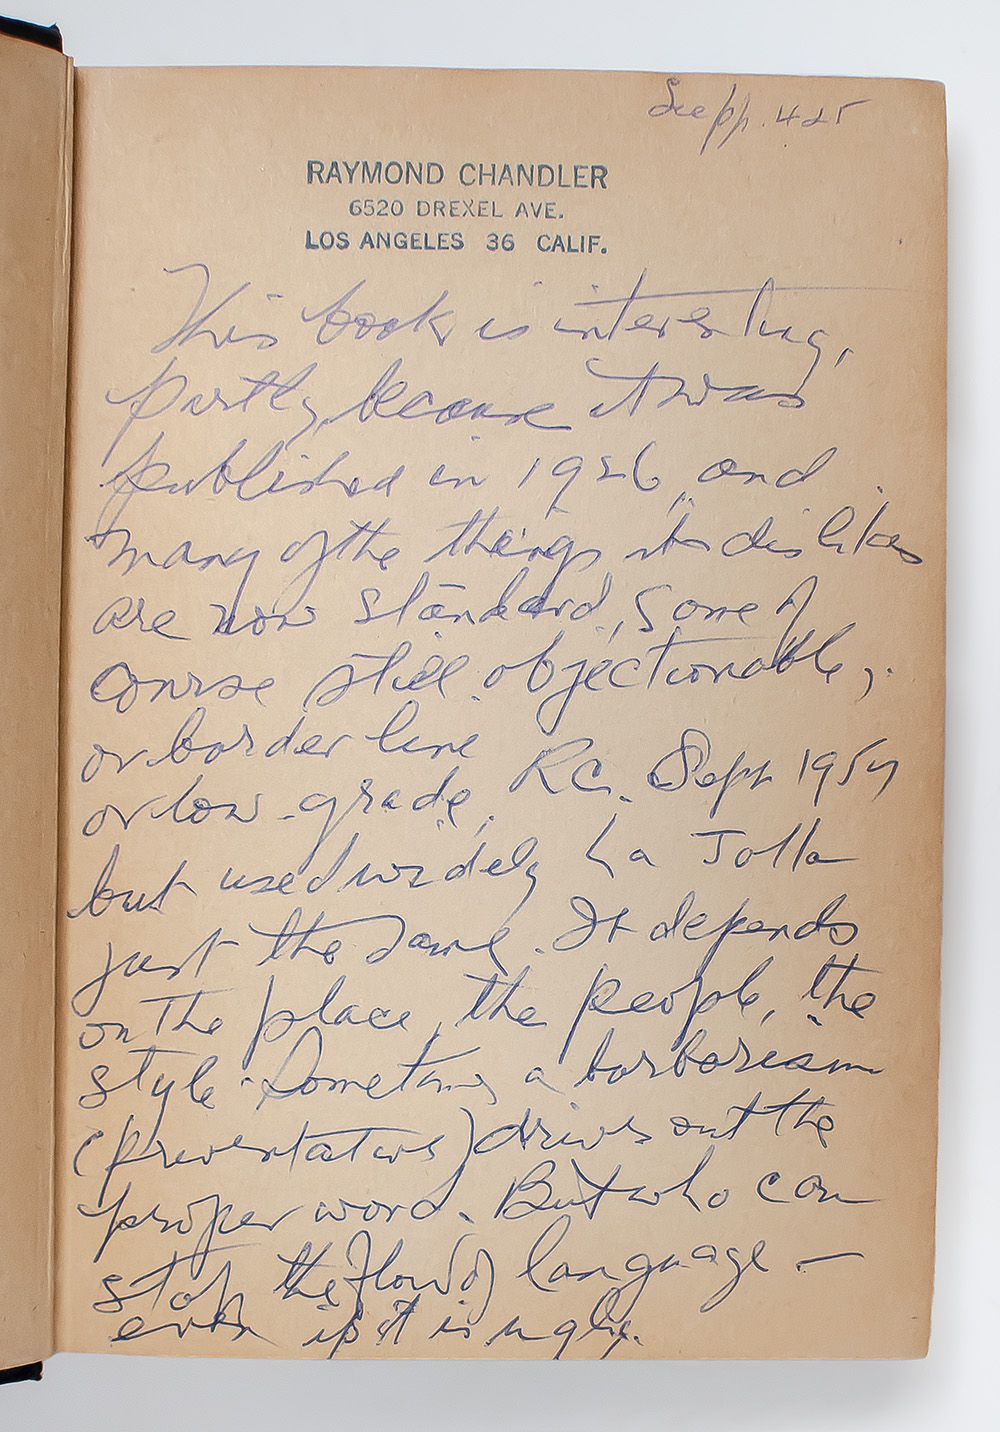 See pp. 425
RAYMOND CHANDLER
6520 DREXEL AVE.
LOS ANGELES 36 CALIF.
This book is interesting,
partly because it was
published in 1926 and
many of the things it dislikes
are now standard, some of
course still objectionable,
or border line
or low-grade, RC. Sept 1957
but used widely La Jolla
just the same. It depends
on the place, the people, the
style. Sometimes a barbarism
(preventative) drives out the
proper word. But who can
stop the flow of language —
even if it is ugly.